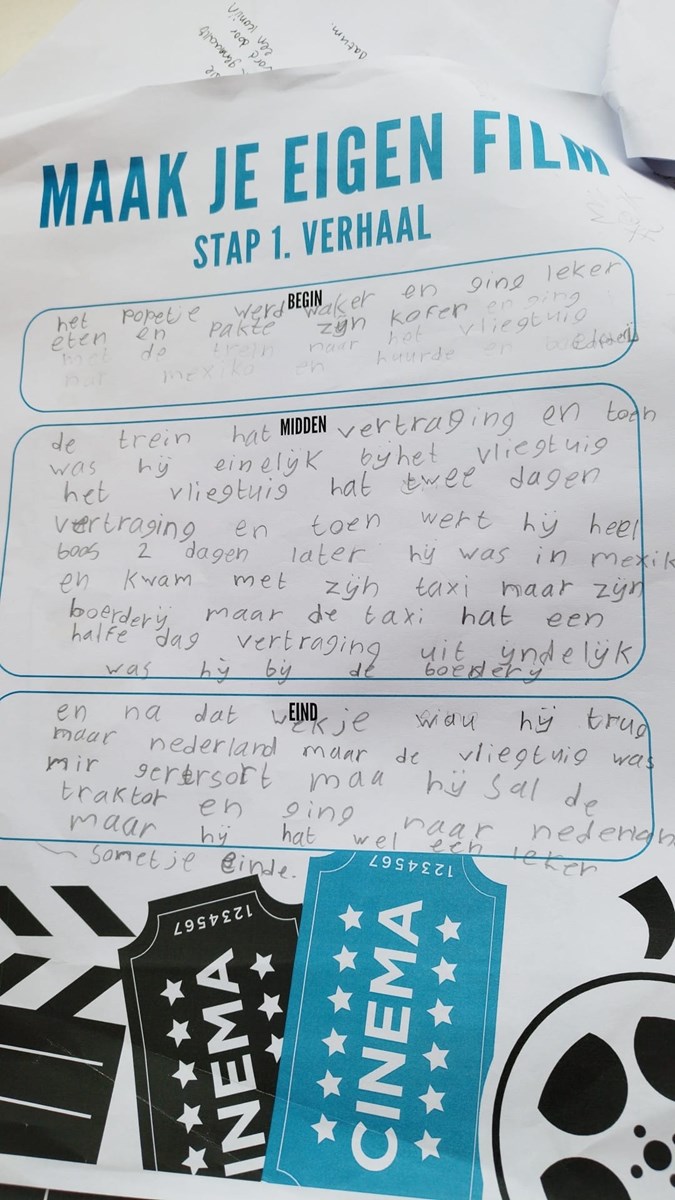 datum.
een konin
MAAK JE EIGEN FILM
STAP 1. VERHAAL
BEGIN
het popetje werd waker en ging leker
eten en pakte zijn kofer en ging
met de trein naar het vliegtuig
nar mexiko en huurde en boerderij
MIDDEN
de trein hat vertraging en toen
was hij einelijk bij het vliegtuig
het vliegtuig hat twee dagen
vertraging en toen wert hij heel
boos 2 dagen later hij was in mexik
en kwam met zijn taxi maar zijn
boerderij maar de taxi hat een
halfe dag vertraging uit ijndelijk
was hij bij de boerderij
EIND
en na dat wekje wau hij trug
maar nederland maar de vliegtuig was
mir maa hij sal de
traktor en ging naar nederlan
maar hij hat wel een leker
sometje einde.
1234567
CINEMA
1234567
CINEMA